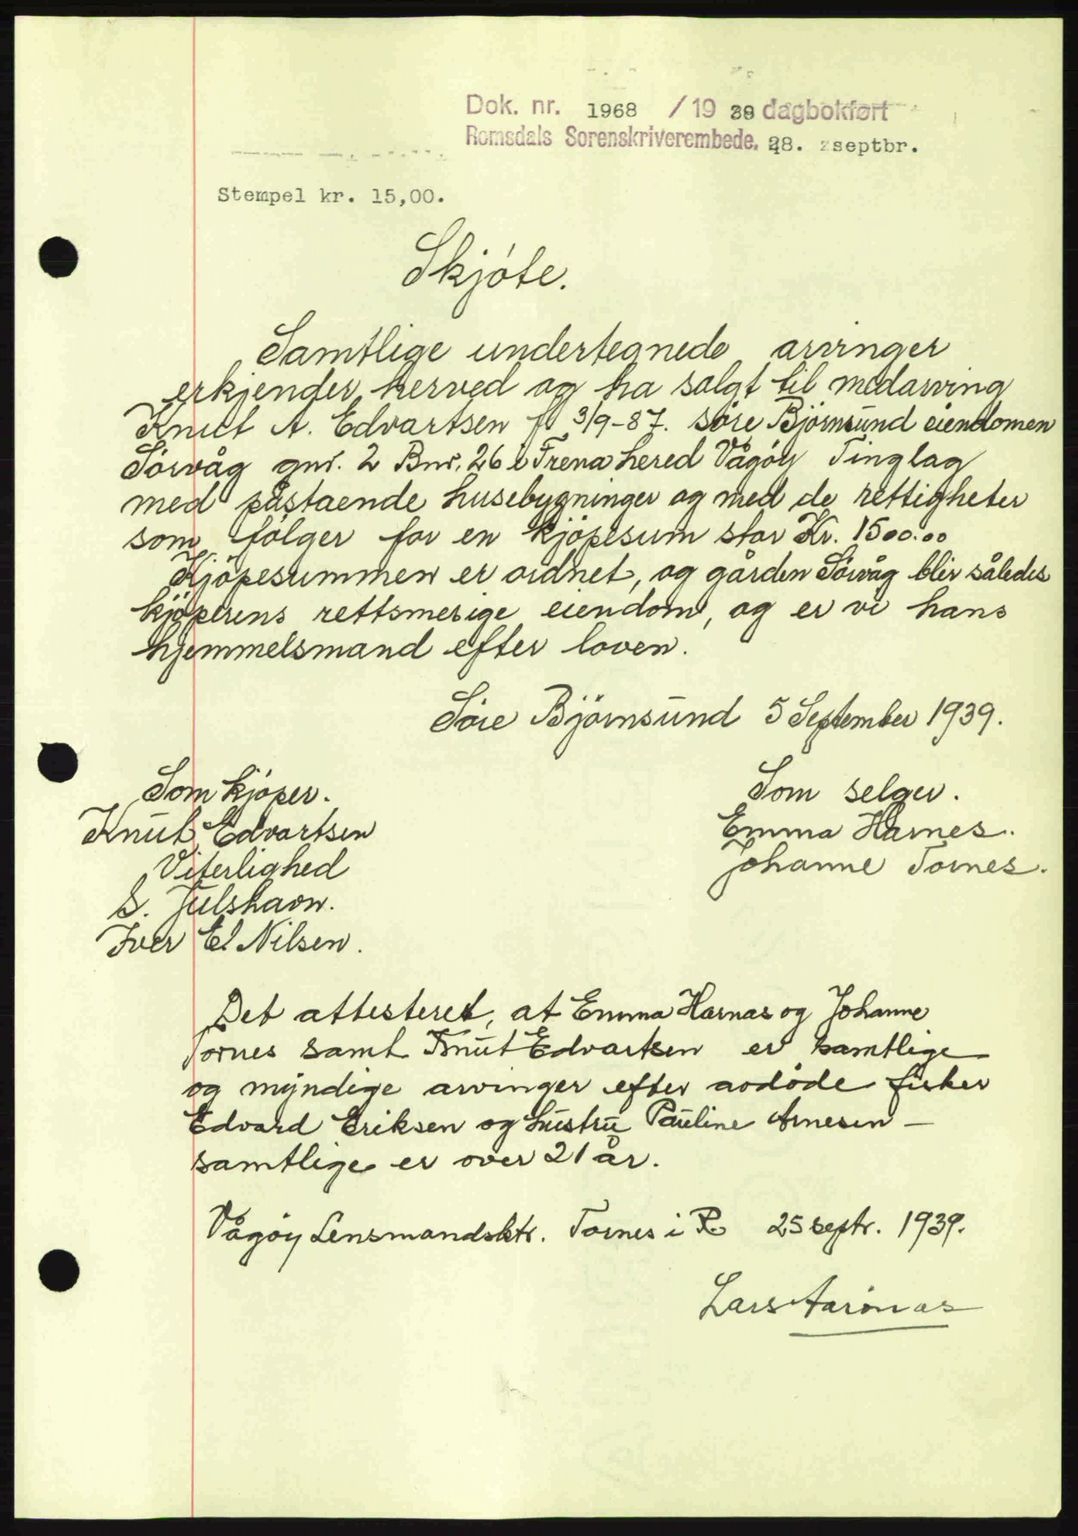 Dok. nr. 1968 / 19 39 dagbokført
Romsdals Sorenskriverembede. 28. septbr.
Stempel kr. 15,00.
Skjóte.
Samtlige undertegnede arvinger
erkjender herved og ha solgt til medarving
Knut A. Edvartsen f 3/9-87. söre Björnsund eiendomen
Sörvåg gnr. 2 Bnr. 26 i Frena hered Vågöy Tinglag
med påstaende husebygninger og med de rettigheter
som fölger for en kjöpesum stor Kr. 1500.00
Kjöpesummen er ordnet, og gården Sörvåg blir således
kjöperens rettsmesige eiendom, og er vi hans
hjemmelsmand efter loven.
Söre Björnsund 5 September 1939.
Som kjöper.
Knut Edvartsen
Viterlighed
S. Julshavn.
Iver El Nilsen.
Som selger.
Emma Harnes.
Johanne Tornes.
Det attesteret, at Emma Harnas og Johanne
Tornes samt Knut Edvartsen er samtlige
og myndige arvinger efter avdöde fisker
Edvard Eriksen og hustru Pauline Arnesen –
samtlige er over 21 år.
Vågöy Lensmandsktr. Tornes i R 25 septr. 1939.
Lars Aarönæs